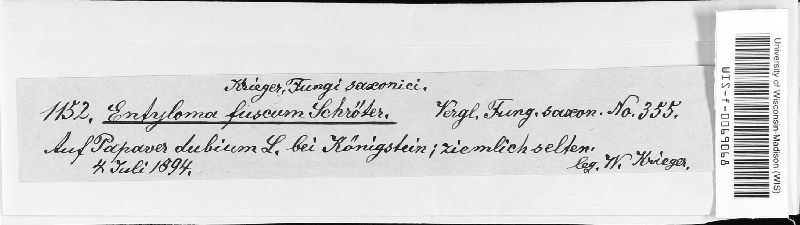 Krieger, Fungi saxonici.
1152. Entyloma fuscum Schröter. Vergl. Fung. saxon. No. 355.
Auf Papaver dubium L. bei Königstein; ziemlich selten.
4 Juli 1894. leg. W. Krieger.
University of Wisconsin-Madison (WIS)
WIS-f-0069068